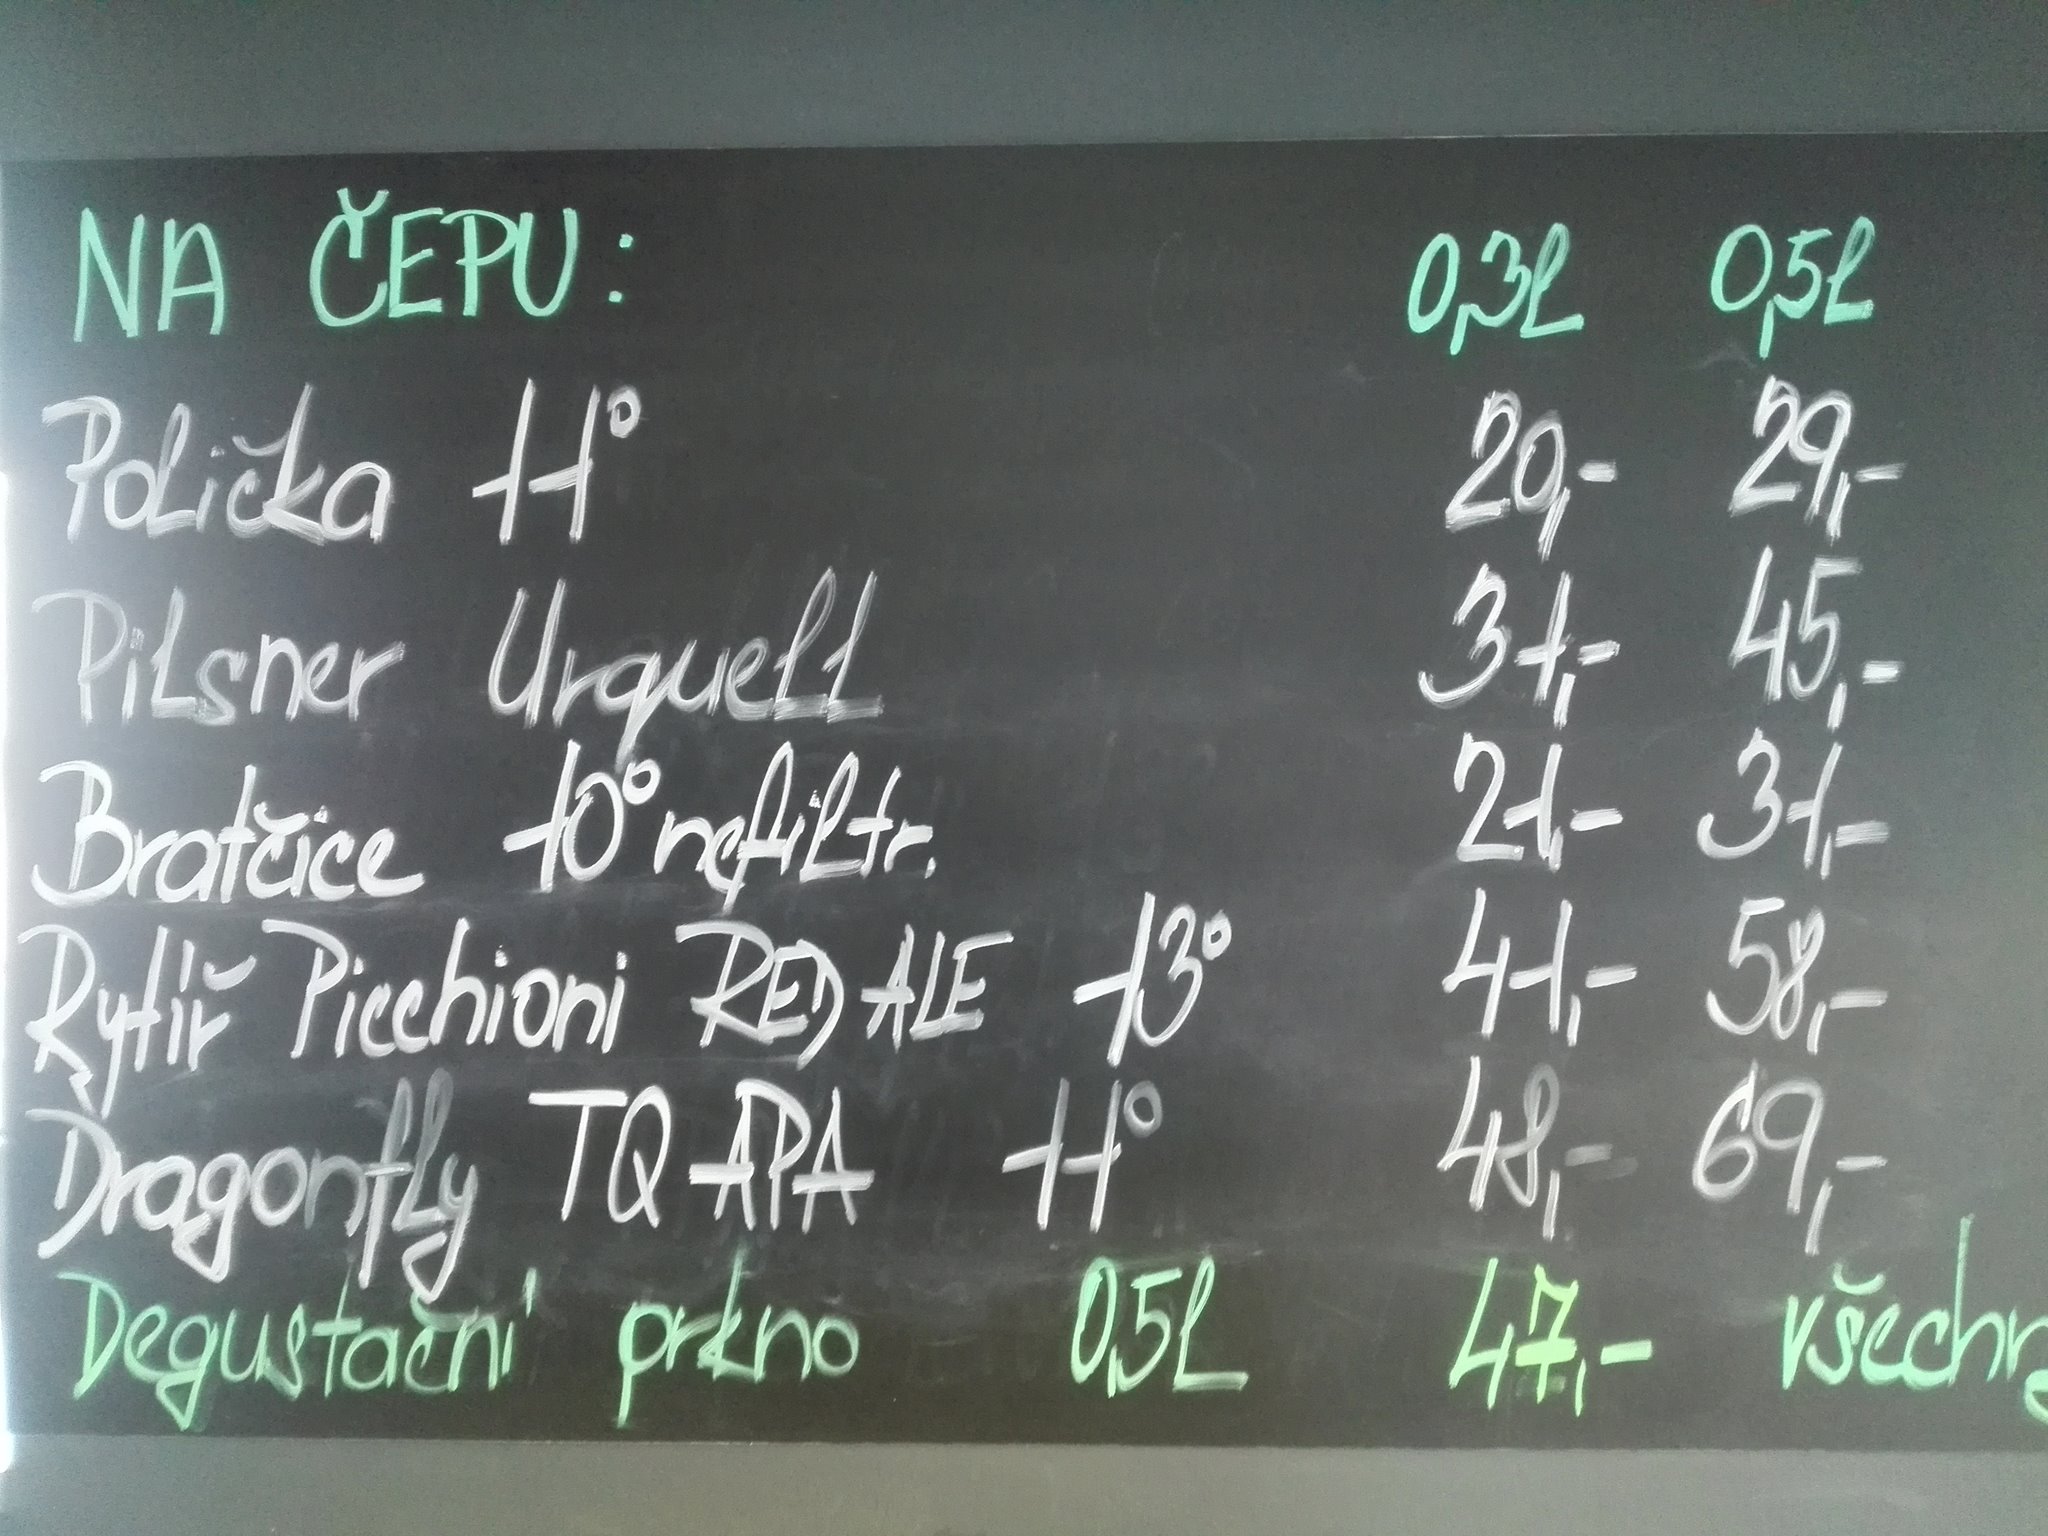 NA ČEPU: 0,3l 0,5l
Polička 11° 20,- 29,-
Pilsner Urquell 31,- 45,-
Bratčice 10° nefiltr. 21,- 31,-
Rytíř Picchioni RED ALE 13° 41,- 58,-
Dragonfly TQ APA 11° 48,- 69,-
Degustační prkno 0,5l 47,- všechny